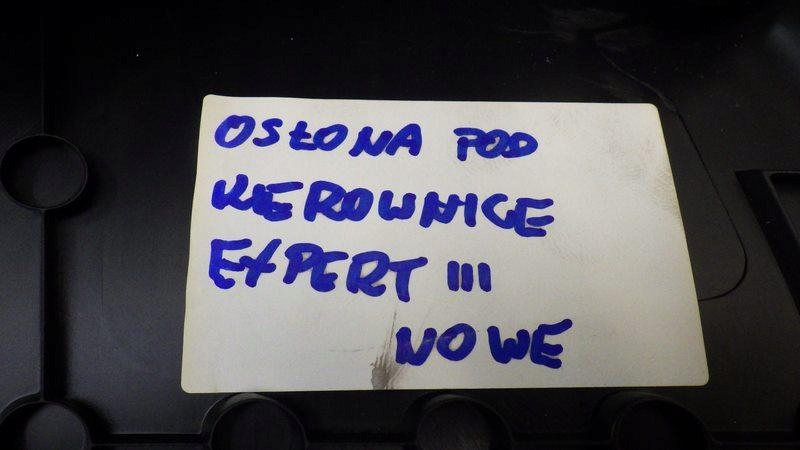 OSŁONA POD
KIEROWNICE
EXPERT III
NOWE